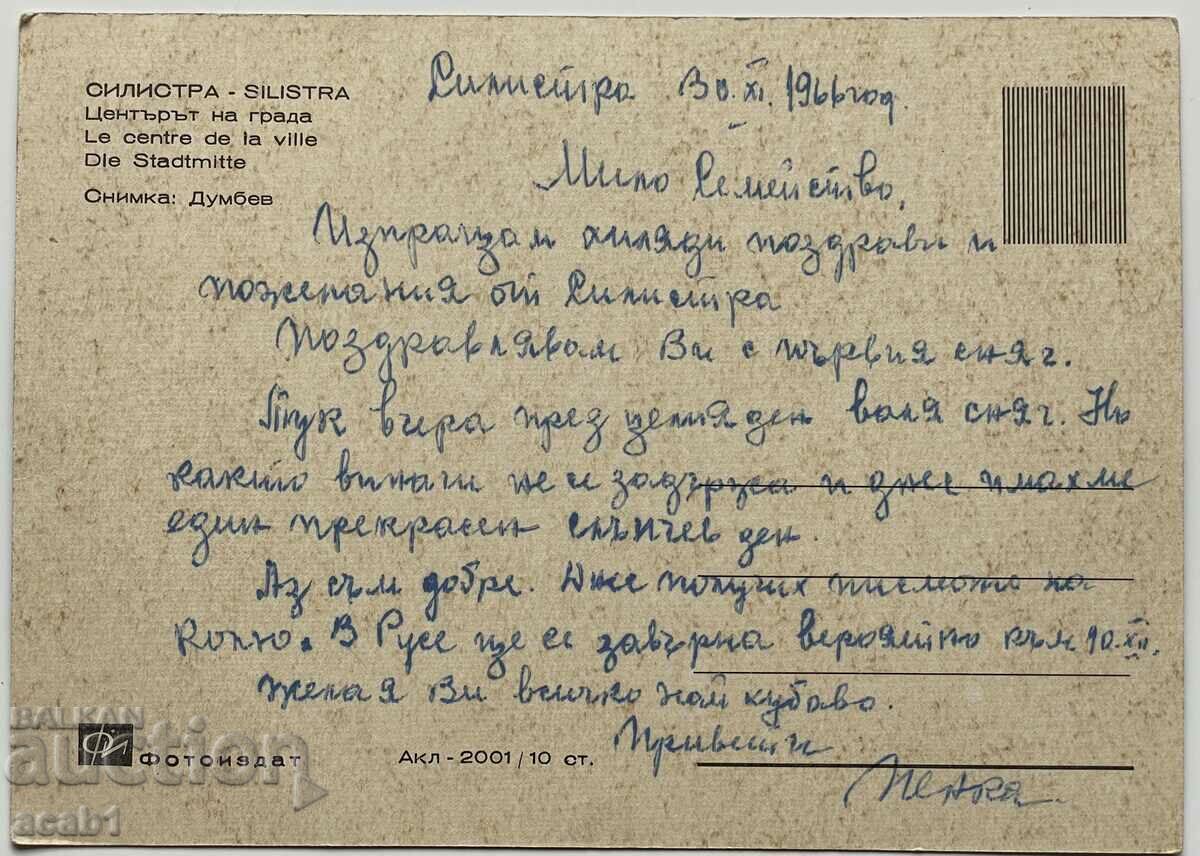 СИЛИСТРА - SILISTRA
Центърът на града
Le centre de la ville
Die Stadtmitte
Снимка: Думбев
Силистра 30.XI.1966 год.
Мило Семейство,
Изпращам хиляди поздрави и
пожелания от Силистра
Поздравлявам Ви с първия сняг.
Тук вчера през целия ден валя сняг. Но
както винаги не се задържа и днес имахме
един прекрасен слънчев ден.
Аз съм добре. Днес получих писмото на
Кольо. В Русе ще се завърна вероятно към 10.XII.
Желая Ви всичко най хубаво.
Привети
Пенка
Фотоиздат
Акл - 2001/10 ст.
BALKAN
auction
acab1